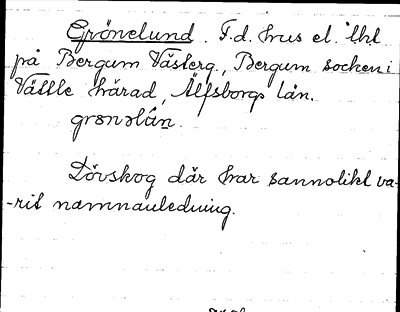 Grönelund. F.d. hus el. lhl
på Bergum Västerg., Bergum socken i
Vättle härad, Älfsborgs län.
grønəlún.
Lövskog där har sannolikt va-
-rit namnanledning.